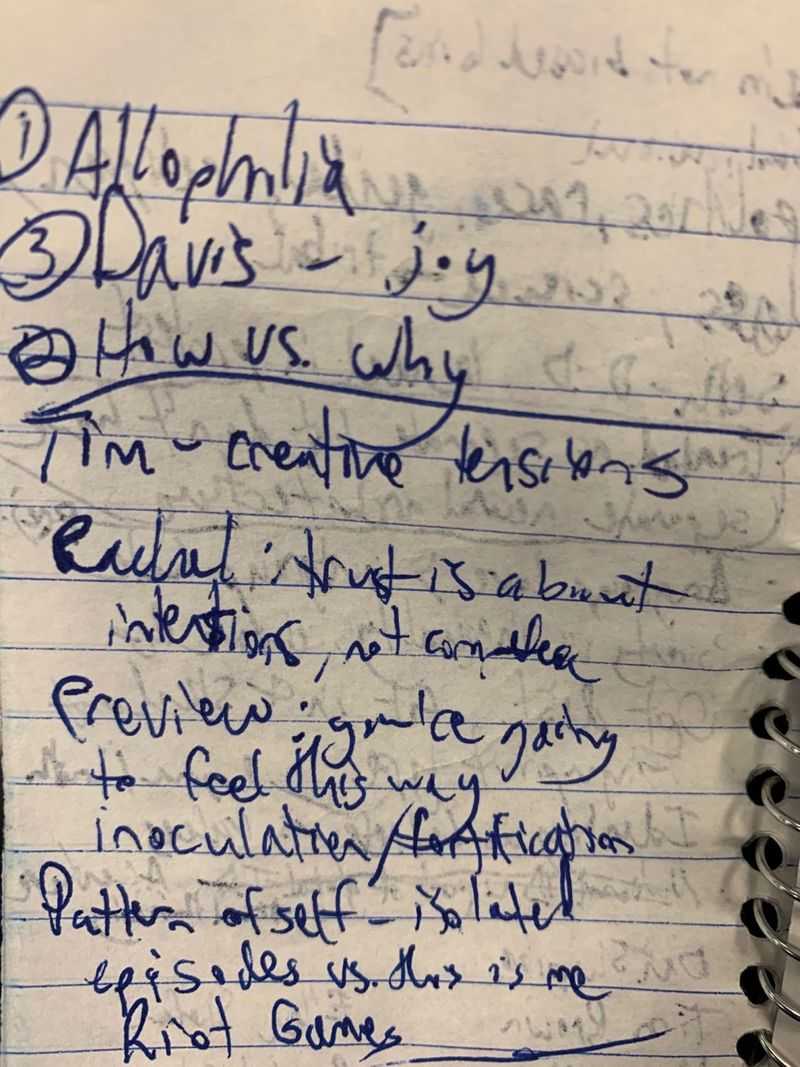 ① Allophilia
③ Davis - joy
② How vs. why
Tim - creative tensions
Rachel : trust is about
intentions, not
Preview : you're going
to feel this way
inoculation/fortification
Pattern of self - isolated
episodes vs. this is me
Riot Games